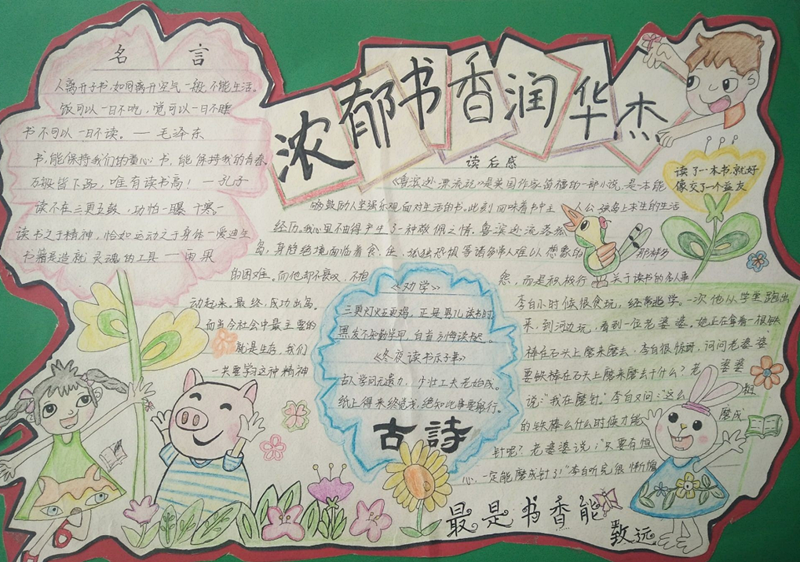 浓郁书香润华杰
名 言
人离开了书,如同离开空气一般,不能生活。
饭可以一日不吃,觉可以一日不睡
书不可以一日不读。—毛泽东
书,能保持我们的童心,书,能保持我的青春
万般皆下品,唯有读书高!—孔子
读不在三更五鼓,功怕一曝十寒—
读书之于精神,恰如运动之于身体—爱迪生
书籍是造就灵魂的工具—雨果
读后感
《鲁滨逊漂流记》是英国作家笛福的一部小说,是一本能
够鼓励人坚强乐观面对生活的书。此刻,回味着书中主人公
经历,我心里不由得产生了一种敬佩之情。鲁滨逊流落荒
岛,身陷绝境面临着食住,孤独恐惧等诸多常人难以想象的
的困难。而他却不哀叹,不怨
,而是积极行
动起来。最终,成功出岛。
而当今社会中最主要的
就是生存,我们
一定要学习这种精神
读了一本书就好
像交了一个益友
《劝学》
三更灯火五更鸡,正是男儿读书时
黑发不知勤学早,白首方悔读书迟
《冬夜读书示子聿》
古人学问无遗力,少壮工夫老始成。
纸上得来终觉浅,绝知此事要躬行。
古詩
关于读书的名人事
李白小时候很贪玩,经常逃学。一次他从学堂跑出
来,到河边玩,看到一位老婆婆。她正在拿着一根铁
棒在石头上磨来磨去。李白很惊讶,问问老婆婆
要铁棒在石头上磨来磨去干什么?老婆婆
说:“我在磨针。”李白又问:这么粗
的铁棒么什么时候才能磨成
针呢?老婆婆说:“只要有恒
心,一定能磨成针!”李白听见很惭愧
最是书香能致远